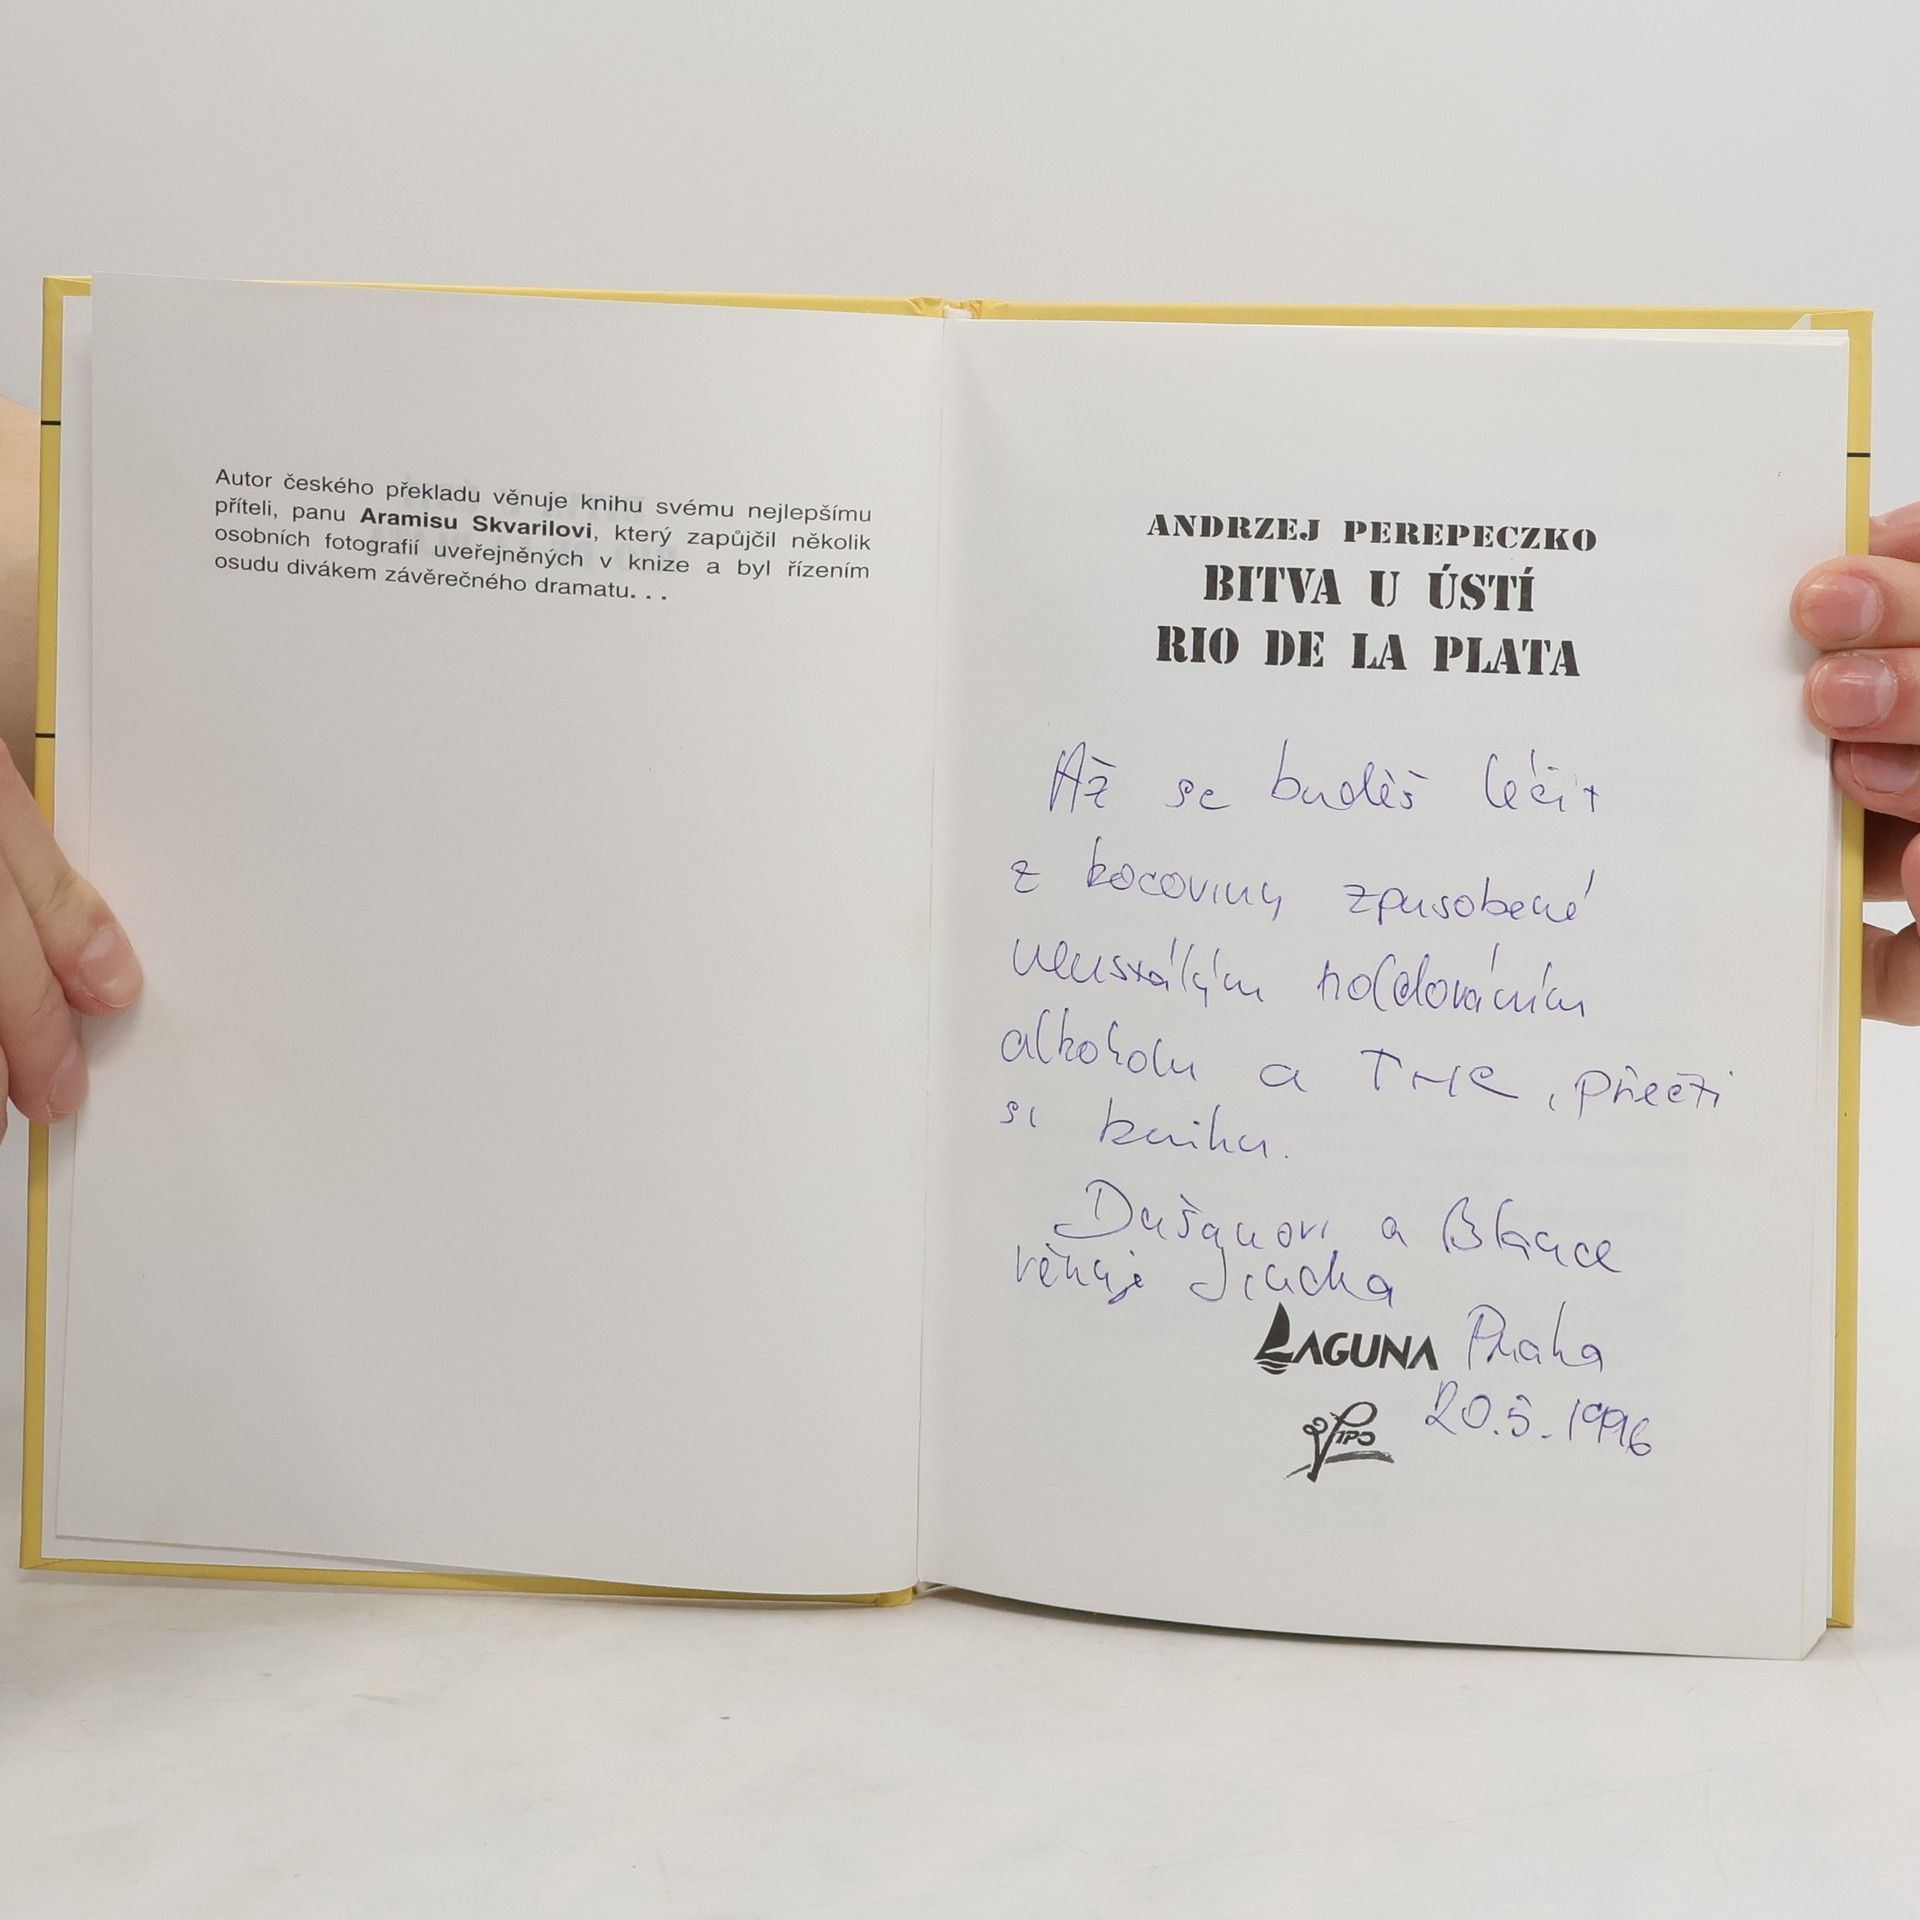 Autor českého překladu věnuje knihu svému nejlepšímu
příteli, panu Aramisu Skvarilovi, který zapůjčil několik
osobních fotografií uveřejněných v knize a byl řízením
osudu divákem závěrečného dramatu. . .
ANDRZEJ PEREPECZKO
BITVA U ÚSTÍ
RIO DE LA PLATA
Až se budeš léčit
z kocoviny způsobené
neustálým holdováním
alkoholu a THC, přečti
si knihu.
Dušanovi a Blance
věnuje
LAGUNA Praha
20.5.1996
VIPO